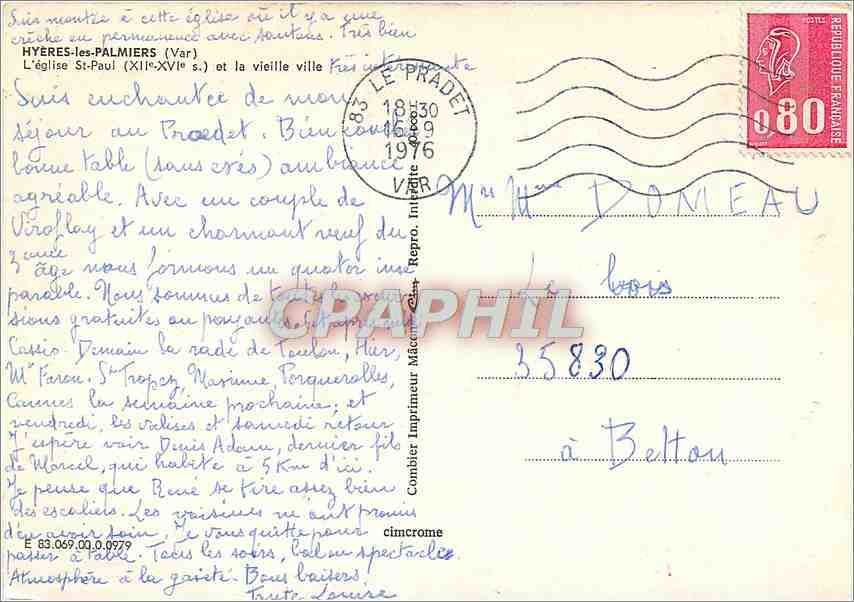 Suis montée à cette église où il y a une
crèche en permanence avec santons. Très bien
HYÈRES-les-PALMIERS (Var)
L'église St-Paul (XIIe-XVIe s.) et la vieille ville très intéressante
Suis enchantée de mon
séjour au Pradet. Bien
bonne table (sans excès) ambiance
agréable. Avec un couple de
Viroflay et un charmant veuf du
3 ème
âge nous formons un quatuor insé
parable. Nous sommes de toutes les excur
sions gratuites ou payantes.
Cassis. Demain la rade de Toulon, Hier,
Mt Faron. St Tropez, Maxime, Porquerolles,
Cannes la semaine prochaine; et
vendredi, les valises et samedi retour
J'espère voir Denis Adam, dernier fils
de Marcel, qui habite à 5 Km d'ici.
Je pense que René se tire assez bien
des escaliers. Les voisines ont promis
d'en avoir soin. Je vous quitte pour
passer à table. Tous les soirs, bal ou spectacle
Atmosphère à la gaieté. Bons baisers
Tante Louise
E 83.069.00.0.0979
cimcrome
Combier Imprimeur Mâcon Cim Repro. Interdite
83 LE PRADET
18H30
16-9
1976
VAR
POSTES
REPUBLIQUE FRANÇAISE
0,80
CPAPHIL
Mr Mme DOMEAU
Le bois
35830
à Betton